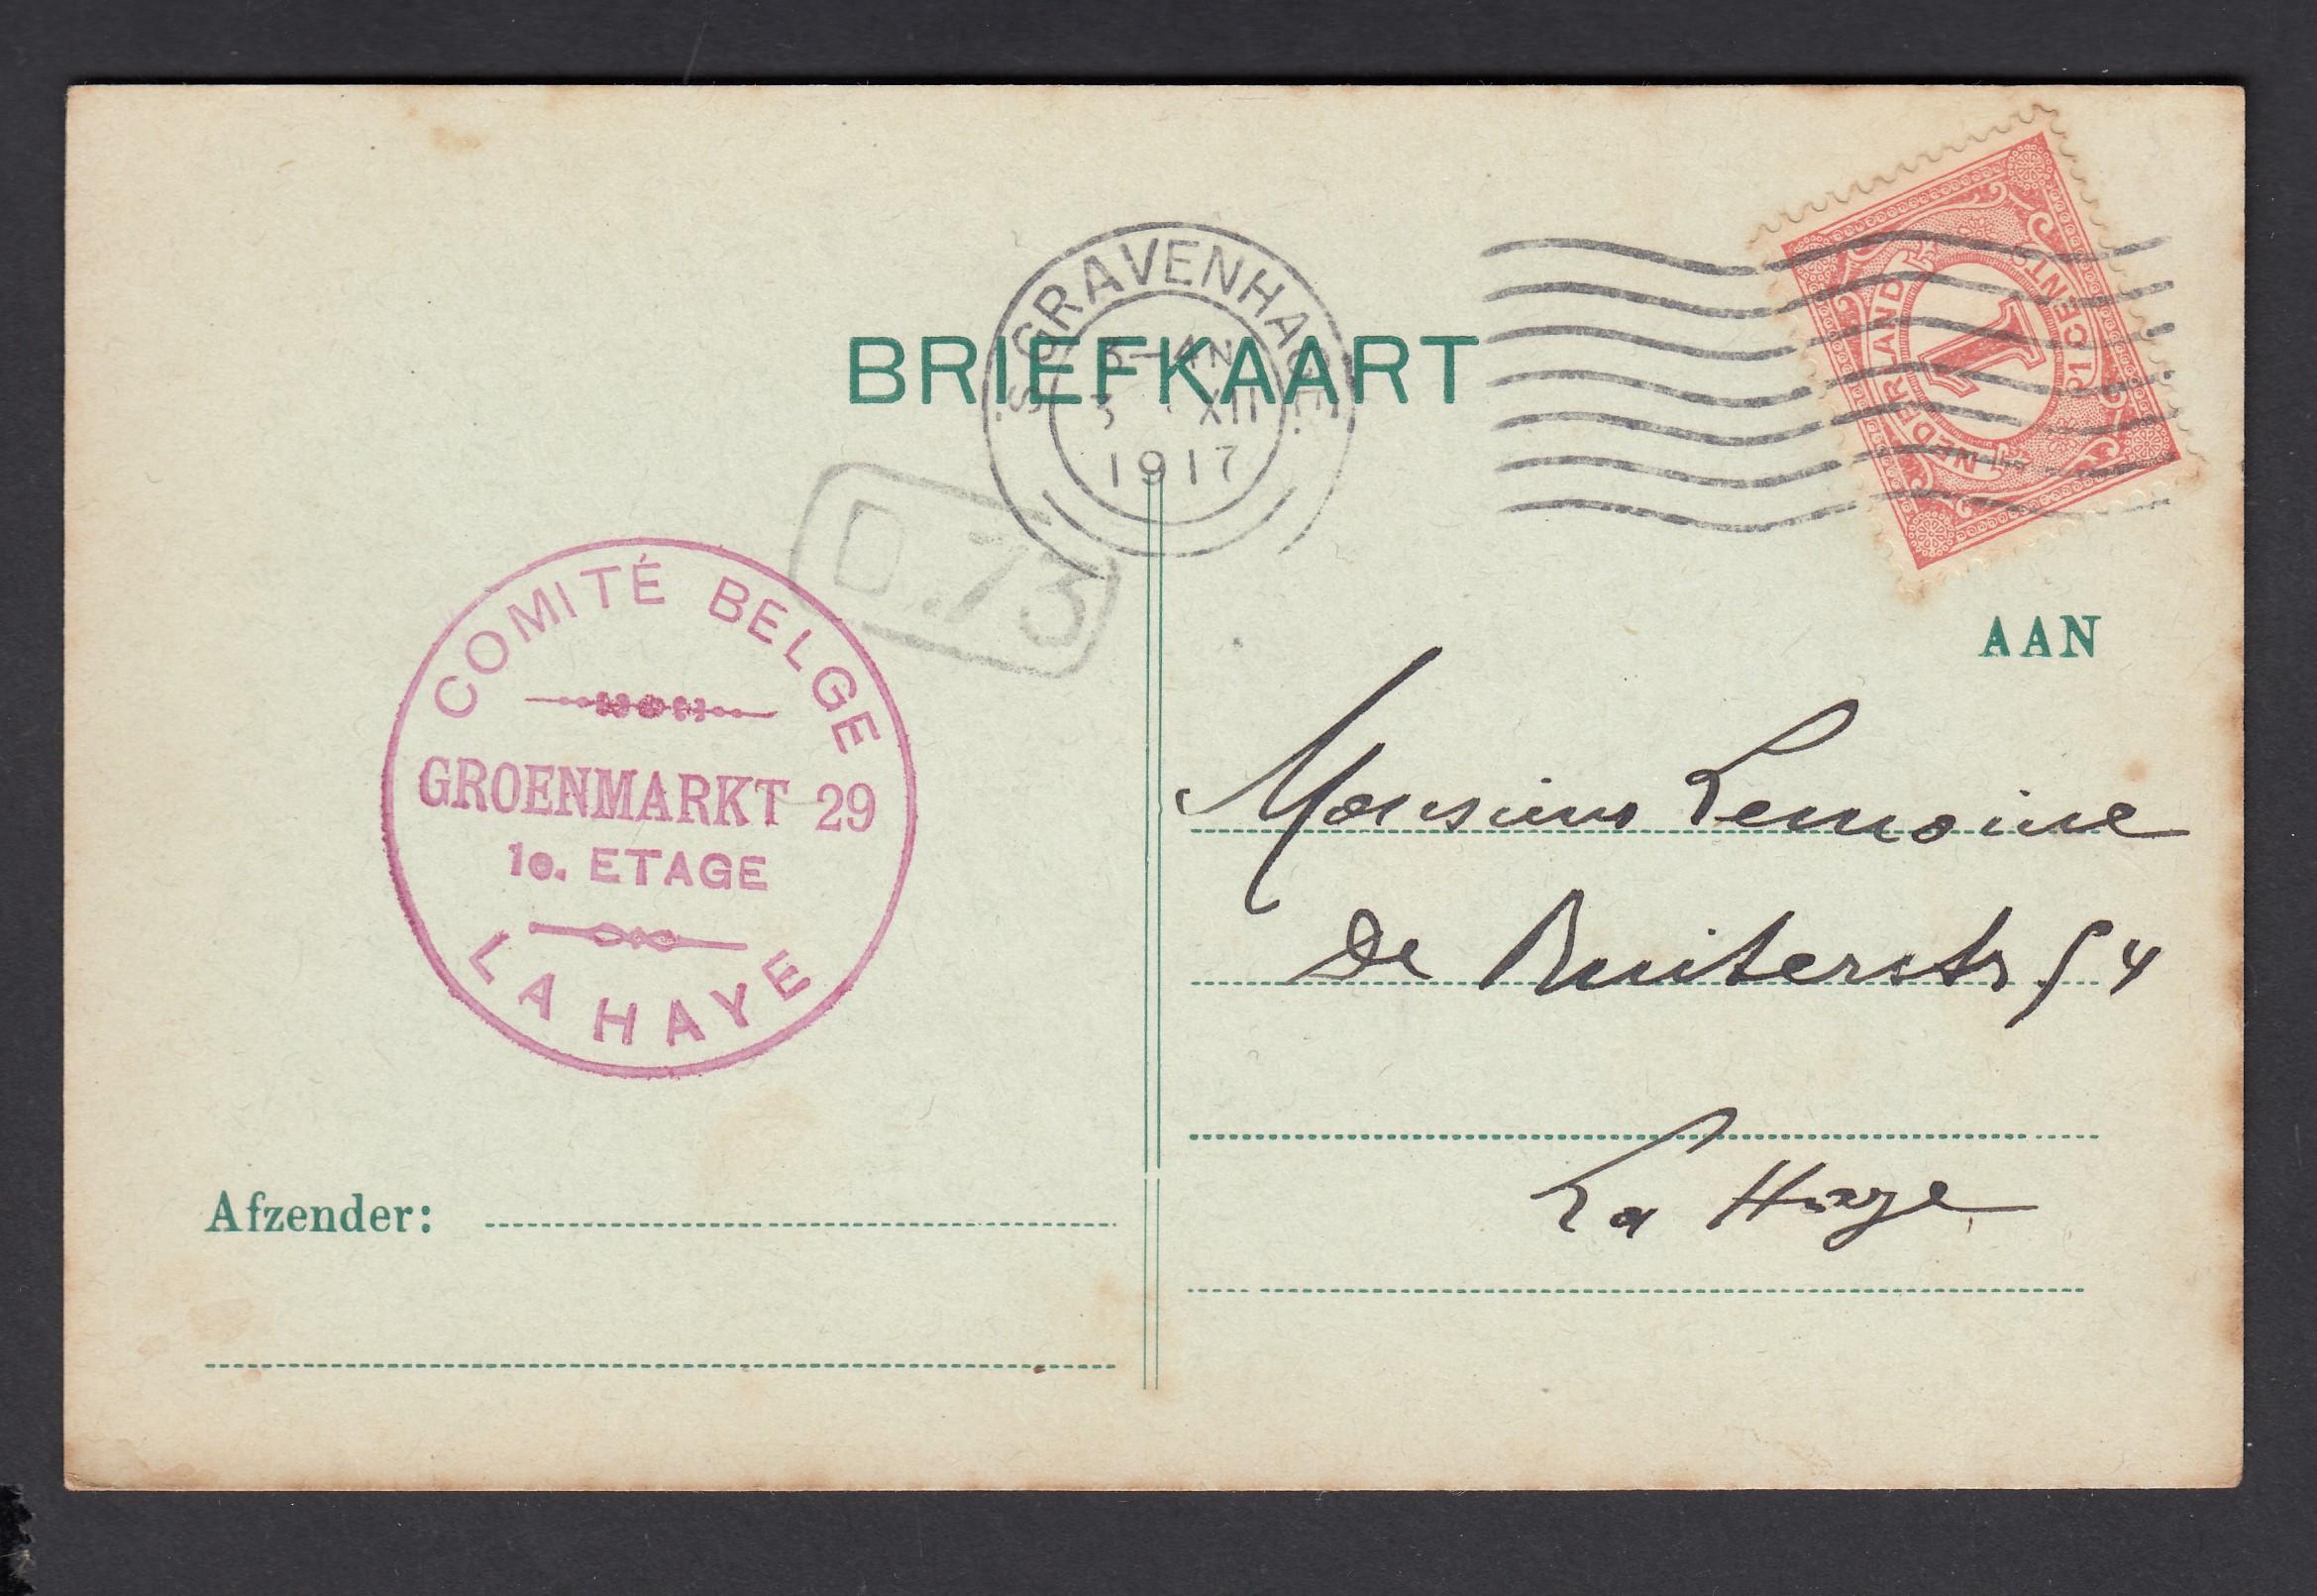 BRIEFKAART
'S GRAVENHAGE.
XII
1917
NEDERLAND
1
1 CENT
D.73
COMITÉ BELGE
GROENMARKT 29
1e. ETAGE
LA HAYE
AAN
Monsieur Lemoine
De Ruiterstr 54
La Haye
Afzender: